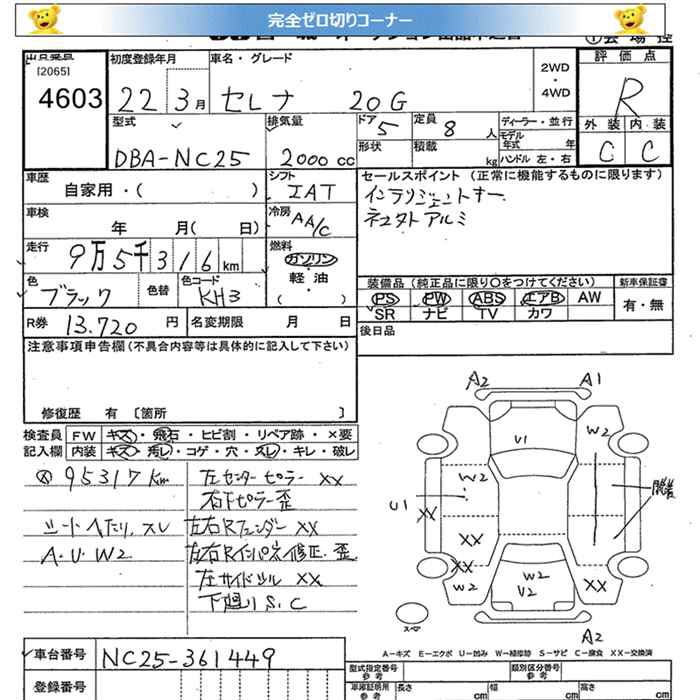 完全ゼロ切りコーナー
[2065]
4603
初度登録年月
22 3月
車名・グレード
セレナ 20G
2WD
・
4WD
評価点
R
外装 内装
C C
型式
DBA-NC25
排気量
2000 cc
ドア 5
定員 8 人
形状
積載 kg
ディーラー・並行
モデル年式 年
ハンドル 左・右
車歴
自家用・( )
シフト
IAT
セールスポイント (正常に機能するものに限ります)
インテリジェントキー
アルミ
車検
年 月( 日)
冷房
AA/C
走行
9万5千316km
燃料
ガソリン
軽・油
( )
色
ブラック
色替
色コード
KH3
装備品 (純正品に限り○をつけてください)
PS PW ABS エアB AW
SR ナビ TV カワ
新車保証書
有・無
R券 13.720 円
名変期限 月 日
後日品
注意事項申告欄(不具合内容等は具体的に記入して下さい)
修復歴 有 〔箇所 〕
検査員
記入欄
FW キズ・飛石・ヒビ割・リペア跡・×要
内装 キズ・汚レ・コゲ・穴・スレ・キレ・破レ
95317km
シートヘたり、スレ
A・U・W2
左センターピラー XX
右下ピラー歪
左右Rフェンダー XX
左右Rインパネ修正、歪
左サイドシル XX
下廻り S、C
A2 A1
U1
W2
W2
U1
XX
脱着
XX
XX
W2
W2
U2
XX
スペア
A2
A－キズ E－エクボ U－凹み W－補修跡 S－サビ C－腐食 XX－交換済
車台番号 NC25-361449
登録番号
型式指定番号
参考
類別区分番号
参考
車庫証明用
参考
長さ cm
幅 cm
高さ cm